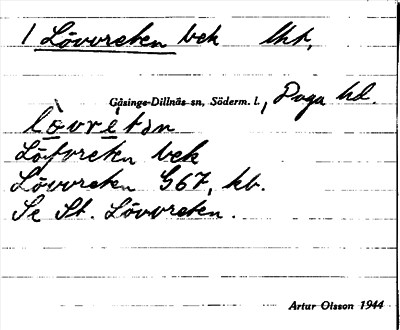 1 Lövvreten bek lht.
Gåsinge-Dillnäs sn, Söderm. l., Daga hd.
lö̀vré̱tən
Löfvreten bek
Lövvreten G67, kb.
Se St. Lövvreten.
Artur Olsson 1944